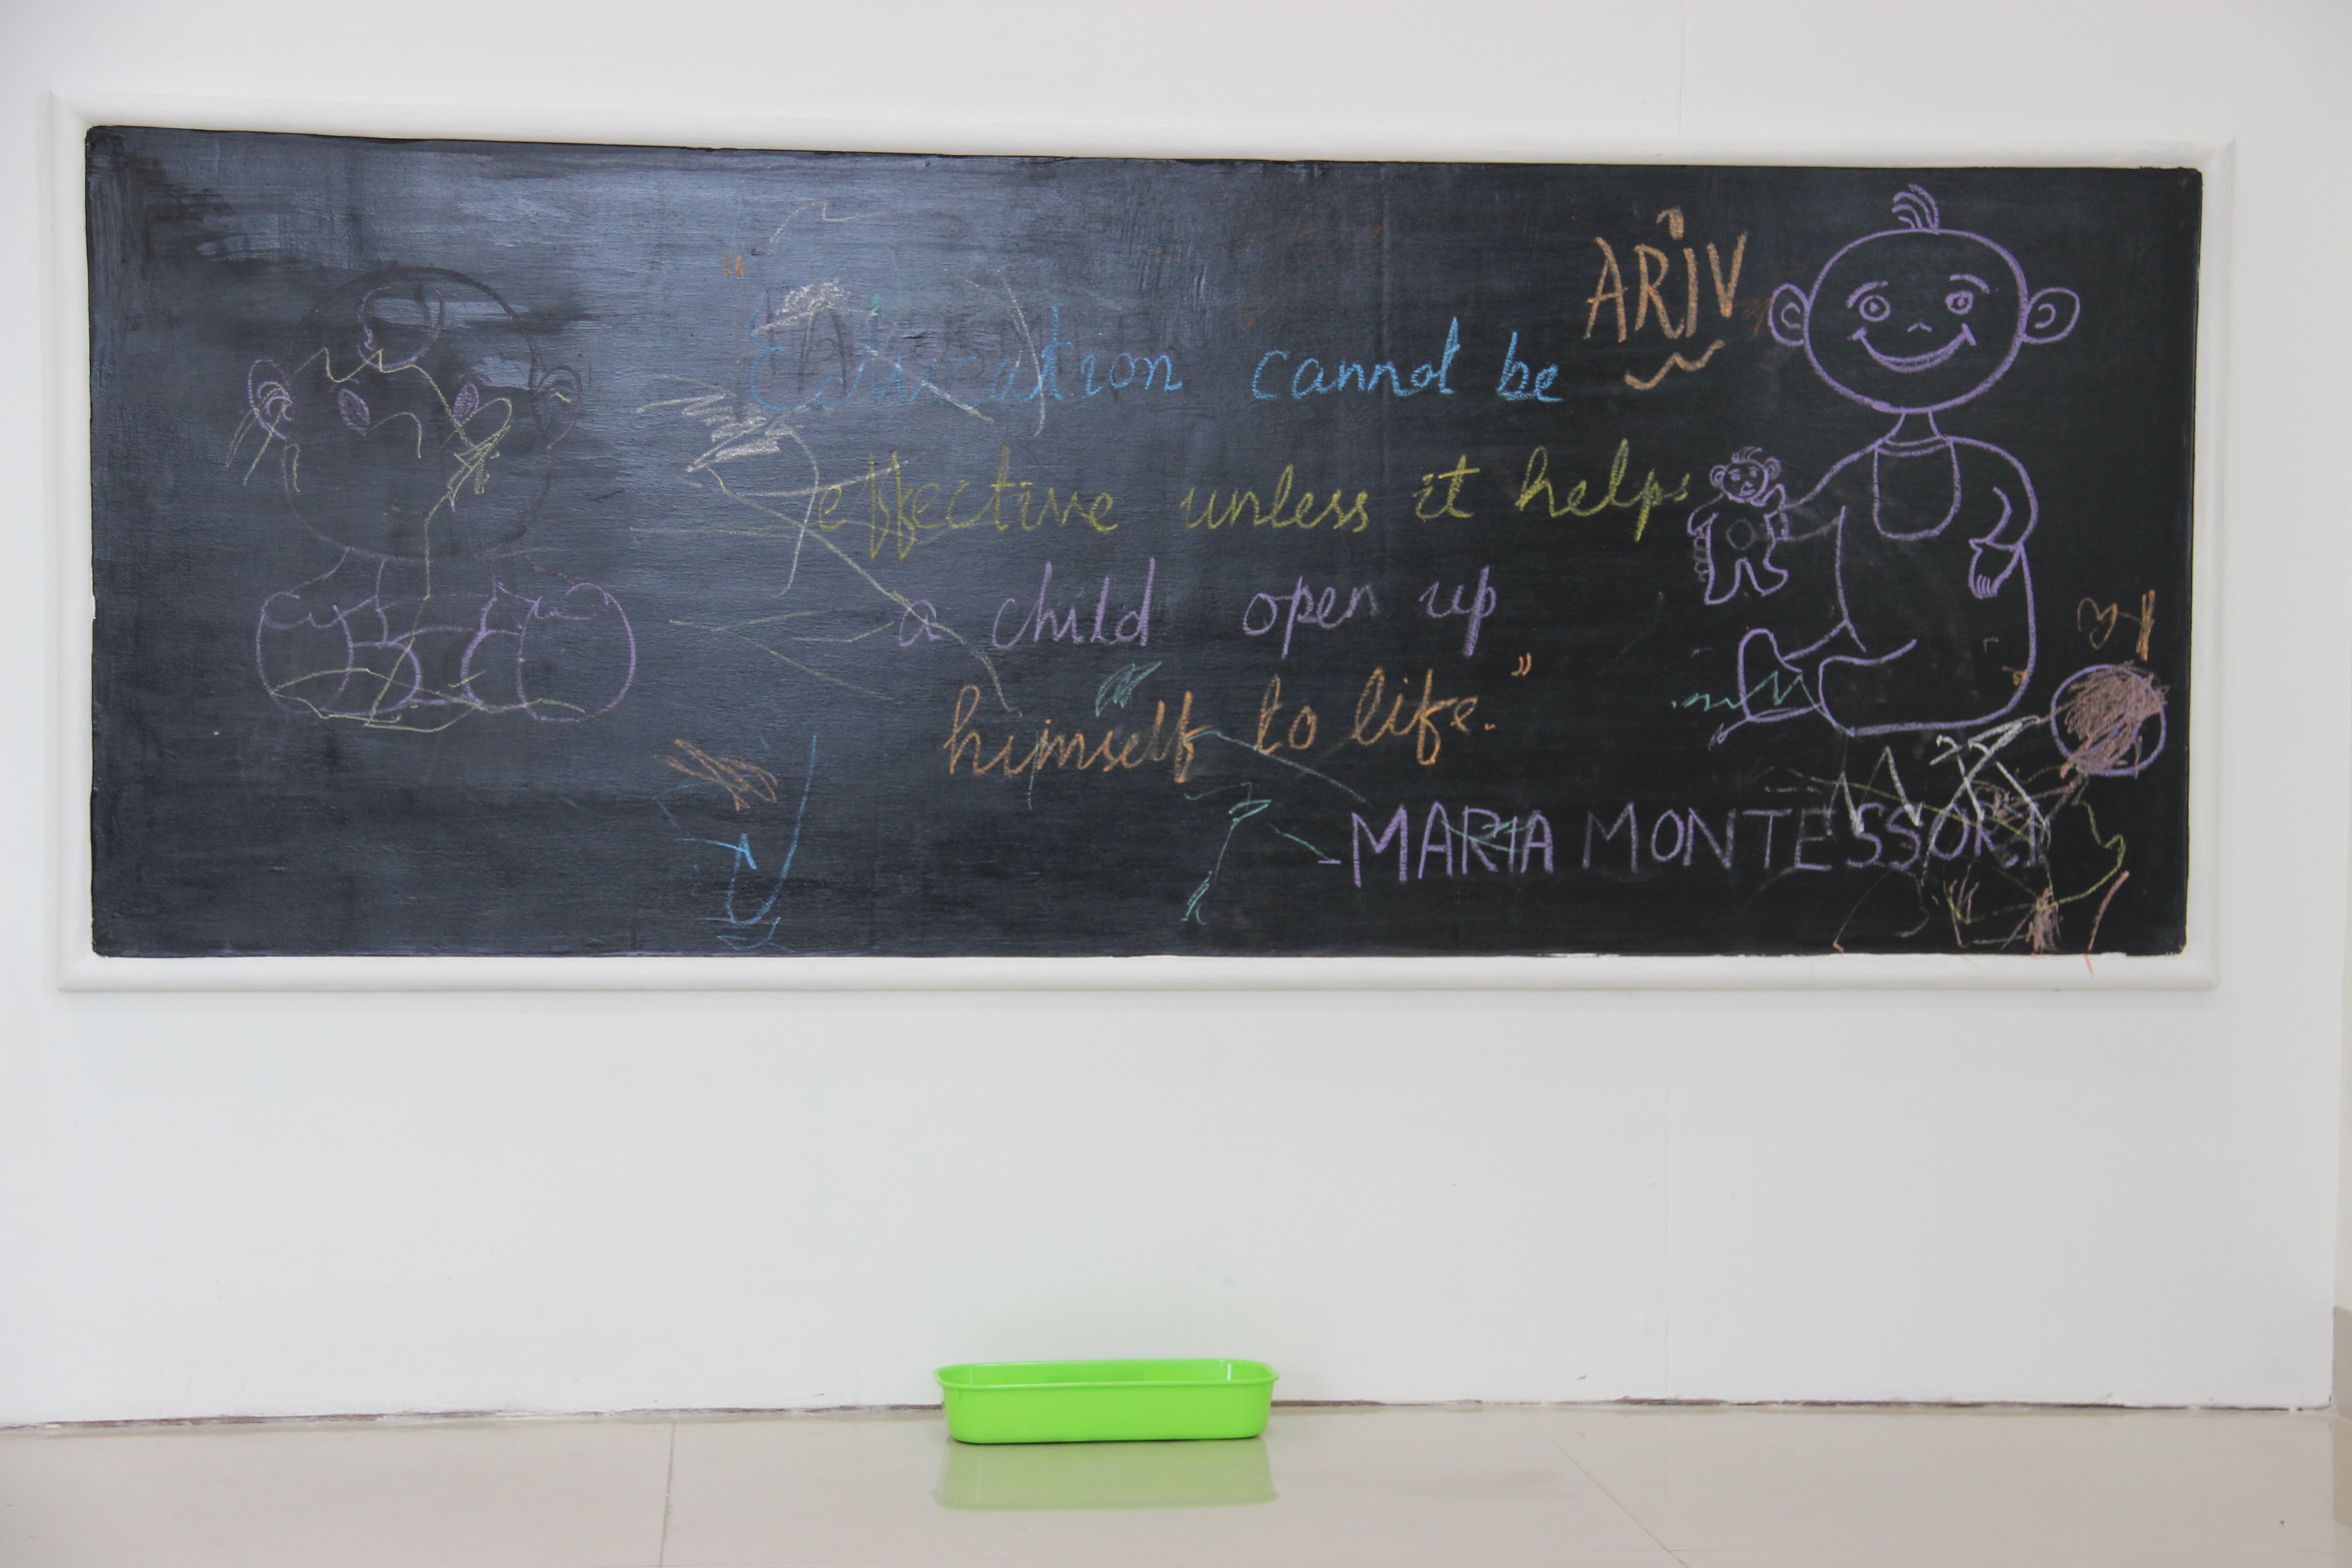 ARIV
"Education cannot be
effective unless it helps
a child open up
himself to life."
-MARIA MONTESSORI